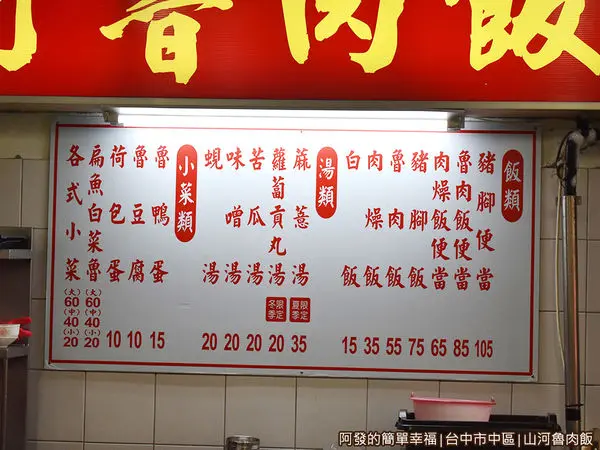 魯肉飯
飯類
豬腳便當 105
魯肉飯便當 85
肉燥飯便當 65
豬腳飯 75
魯肉飯 55
肉燥飯 35
白飯 15
湯類
蔴薏湯 夏季限定 35
蘿蔔貢丸湯 冬季限定 20
苦瓜湯 20
味噌湯 20
蜆湯 20
小菜類
魯鴨蛋 15
魯豆腐 10
荷包蛋 10
扁魚白菜魯 (大)60 (中)40 (小)20
各式小菜 (大)60 (中)40 (小)20
阿發的簡單幸福|台中市中區|山河魯肉飯